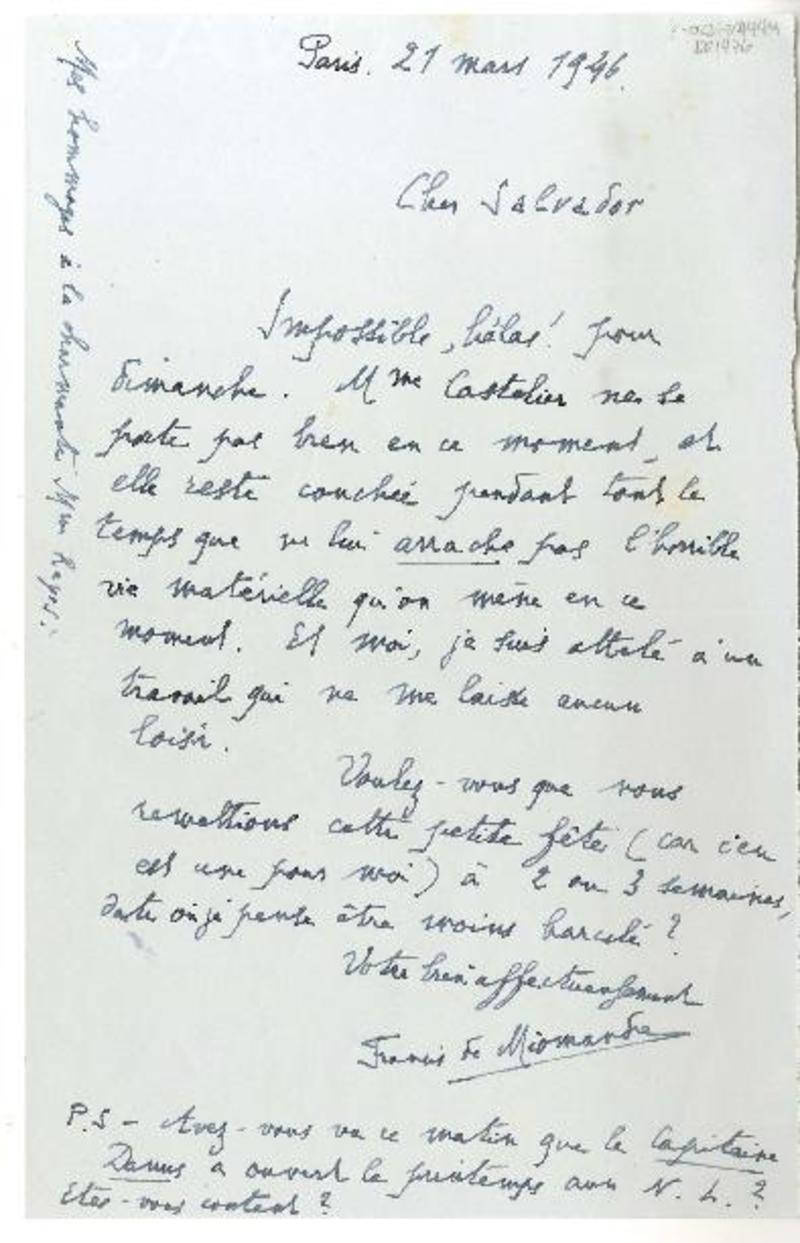 Paris. 21 mars 1946.
Cher Salvador
Impossible, hélas! pour
dimanche. Mme Castelier ne se
porte pas bien en ce moment, et
elle reste couchée pendant tout le
temps que ne lui arrache pas l'horrible
vie matérielle qu'on mène en ce
moment. Et moi, je suis attelé à un
travail qui ne me laisse aucun
loisir.
Voulez-vous que nous
remettions cette petite fête (car c'en
est une pour moi) à 2 ou 3 semaines,
date où je pense être moins harcelé?
Votre bien affectueusement
Francis de Miomandre
P.S - Avez-vous vu ce matin que le Capitaine
a ouvert le printemps aux N. L.?
Etes-vous content?
Mes hommages à la charmante Mme Reyes.